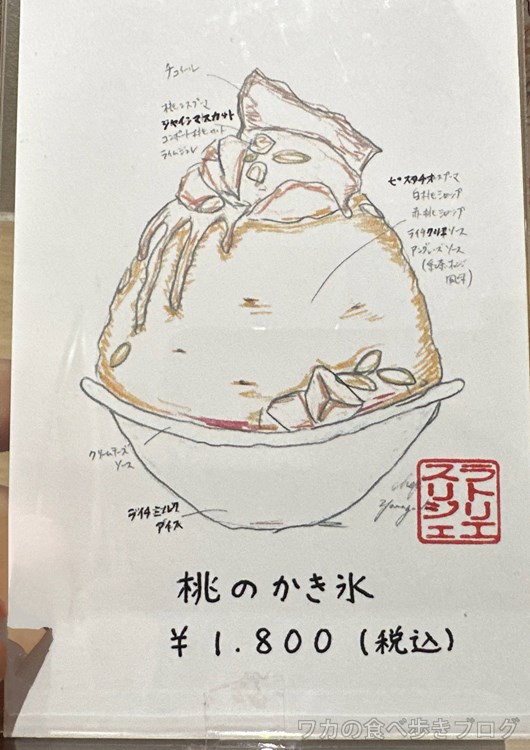 チュイール
桃エスプーマ
シャインマスカット
コンポート桃カット
ライムジュレ
ピスタチオエスプーマ
白桃シロップ
赤桃シロップ
ライチクリームソース
アングレーズソース
クリームチーズ
ソース
ライチミルク
アイス
ラトリエ
スリジェ
桃のかき氷
¥1.800(税込)
ワカの食べ歩きブログ